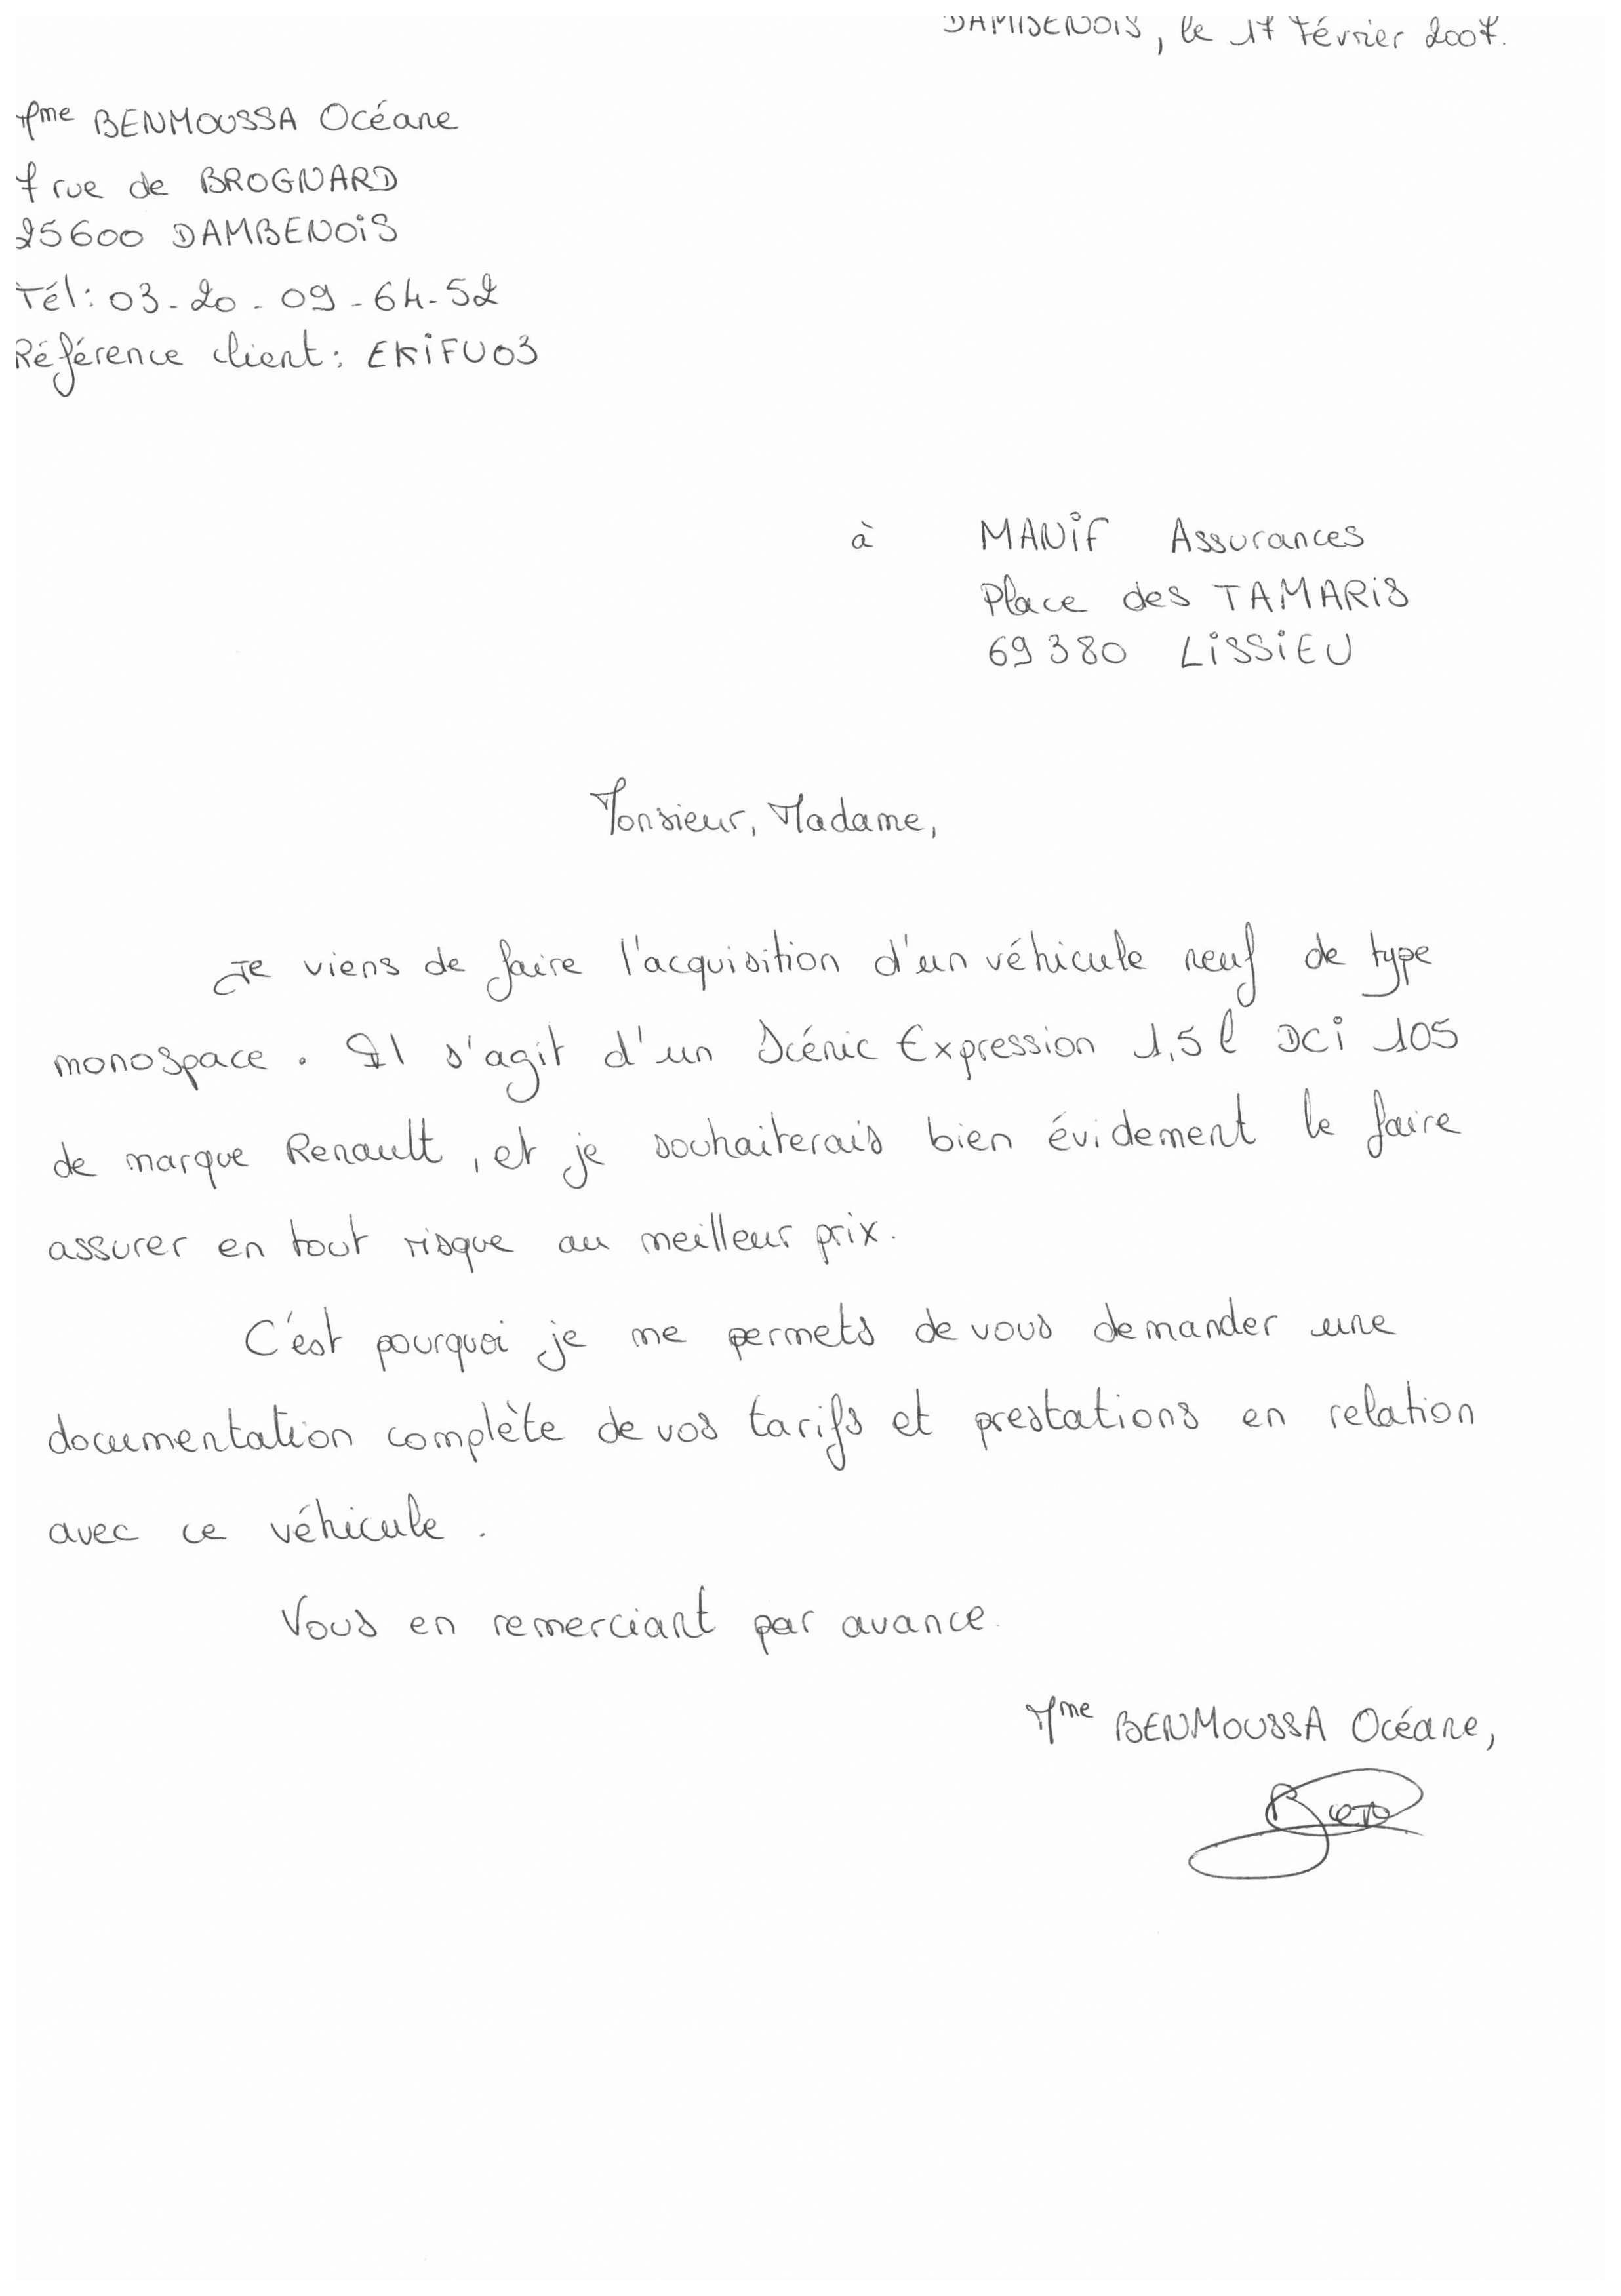 DAMBENOIS, le 17 Février 2007.
Mme BENMOUSSA Océane
7 rue de BROGNARD
25600 DAMBENOIS
Tél: 03-20-09-64-52
Référence client: EKIFU03
à MANIF Assurances
Place des TAMARIS
69380 LISSIEU
Monsieur, Madame,
Je viens de faire l'acquisition d'un véhicule neuf de type
monospace. Il s'agit d'un Scénic Expression 1,5l DCi 105
de marque Renault, et je souhaiterais bien évidement le faire
assurer en tout risque au meilleur prix.
C'est pourquoi je me permets de vous demander une
documentation complète de vos tarifs et prestations en relation
avec ce véhicule.
Vous en remerciant par avance.
Mme BENMOUSSA Océane,